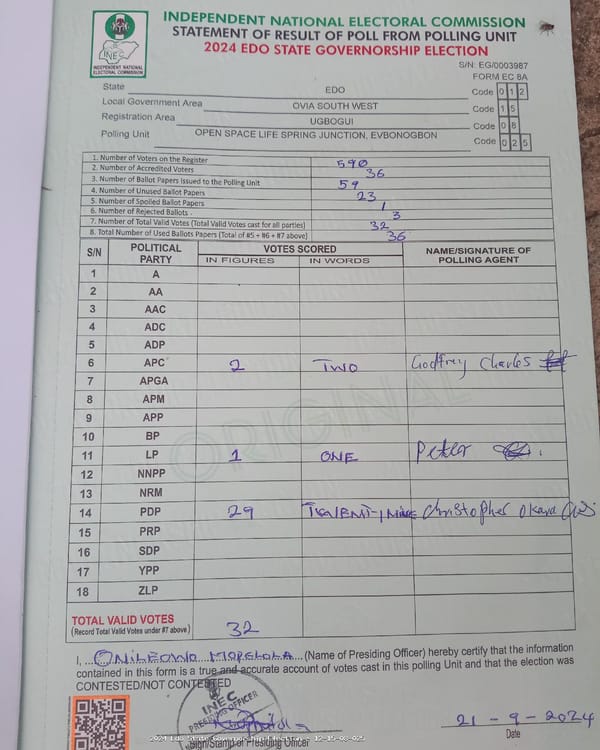 INDEPENDENT NATIONAL ELECTORAL COMMISSION
STATEMENT OF RESULT OF POLL FROM POLLING UNIT
2024 EDO STATE GOVERNORSHIP ELECTION
INEC
INDEPENDENT NATIONAL ELECTORAL COMMISSION
S/N: EG/0003987
FORM EC 8A
State EDO Code 0 1 2
Local Government Area OVIA SOUTH WEST Code 1 5
Registration Area UGBOGUI Code 0 8
Polling Unit OPEN SPACE LIFE SPRING JUNCTION, EVBONOGBON Code 0 2 5
1. Number of Voters on the Register 590
2. Number of Accredited Voters 36
3. Number of Ballot Papers Issued to the Polling Unit 59
4. Number of Unused Ballot Papers 23
5. Number of Spoiled Ballot Papers 1
6. Number of Rejected Ballots 3
7. Number of Total Valid Votes (Total Valid Votes cast for all parties) 32
8. Total Number of Used Ballots Papers (Total of #5 + #6 + #7 above) 36
S/N POLITICAL PARTY VOTES SCORED NAME/SIGNATURE OF POLLING AGENT
IN FIGURES IN WORDS
1 A
2 AA
3 AAC
4 ADC
5 ADP
6 APC 2 TWO Godfrey Charles
7 APGA
8 APM
9 APP
10 BP
11 LP 1 ONE Peter
12 NNPP
13 NRM
14 PDP 29 Christopher Okara
15 PRP
16 SDP
17 YPP
18 ZLP
ORIGINAL
TOTAL VALID VOTES 32
(Record Total Valid Votes under #7 above)
I, ... ONILEOWO MOPELOLA ... (Name of Presiding Officer) hereby certify that the information
contained in this form is a true and accurate account of votes cast in this polling Unit and that the election was
CONTESTED/NOT CONTESTED
INEC
PRESIDING OFFICER
21 - 9 - 2024
Date
Sign/Stamp of Presiding Officer